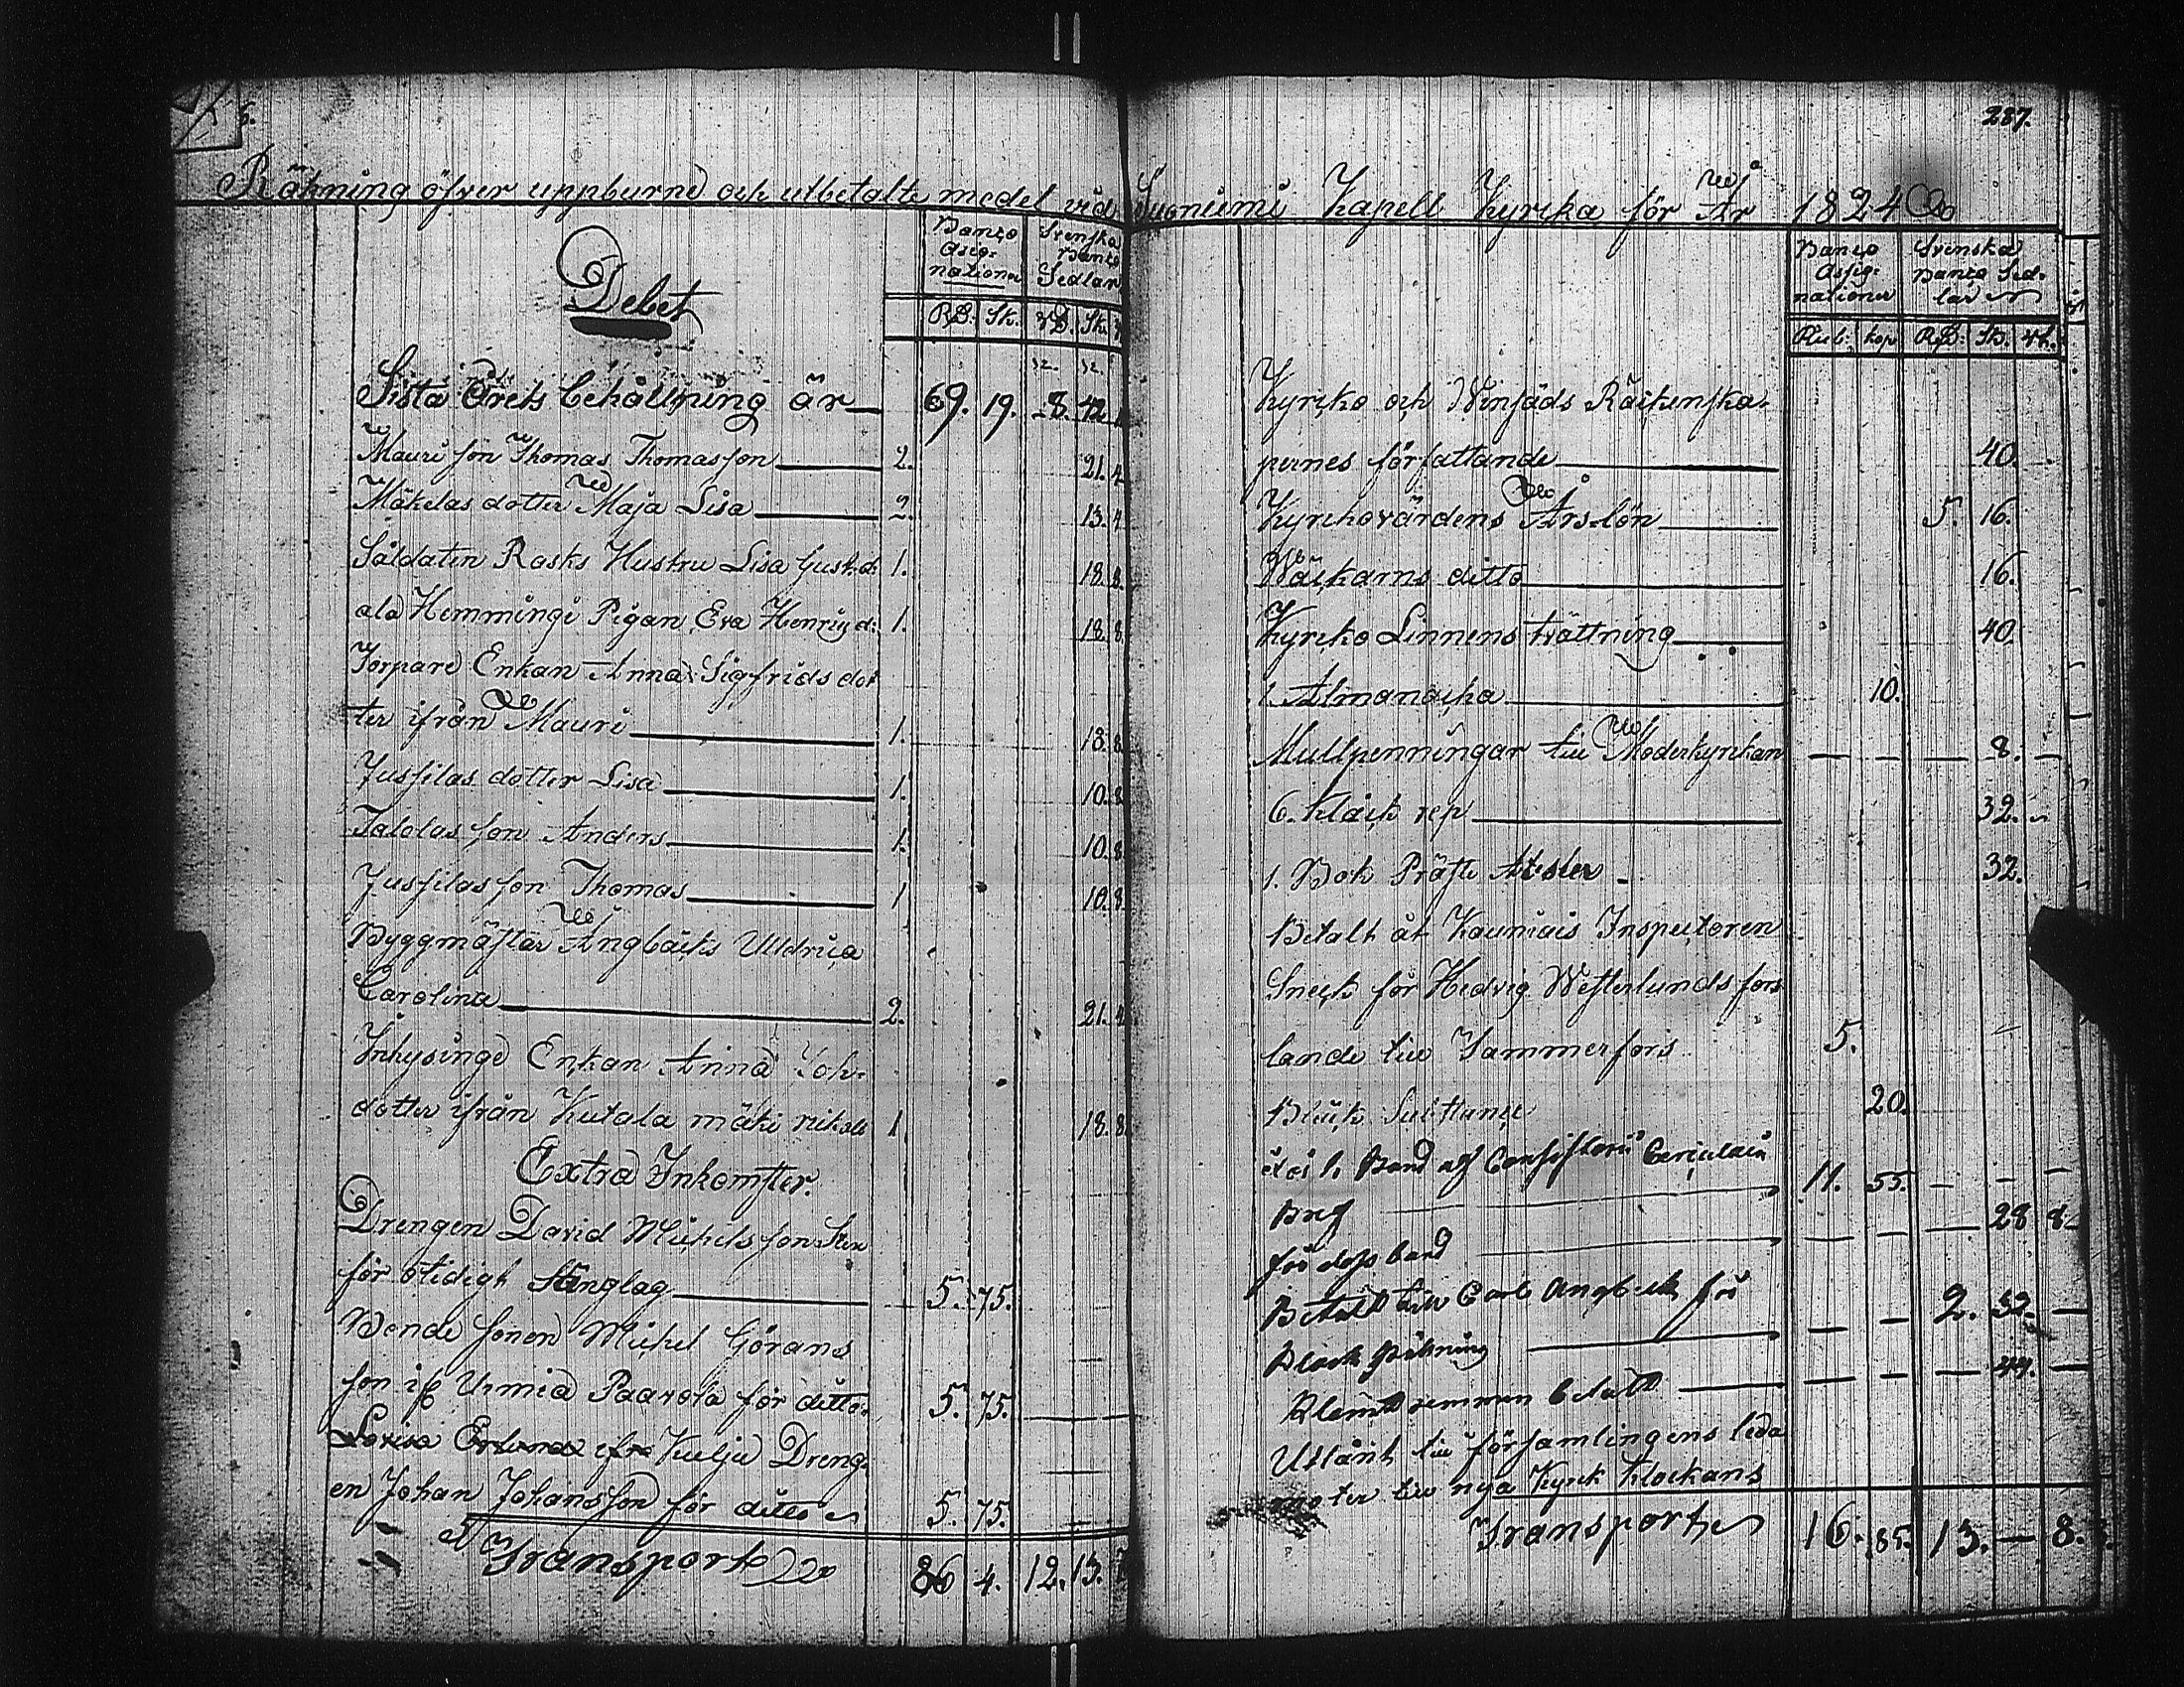 287.
Räkning öfver uppburne och utbetalte medel vid Suoniemi Kapell Kyrka för År 1824
Debet
Banco Assig-nationer Svenska Banco Sedlar
RD. Sk. RD. Sk.
Sista Årets behållning är 69. 19. 8. 42.
Mauri son Thomas Thomasson 2. 21. 4
Mäkelas dotter Maja Lisa 2. 13. 4.
Såldaten Rasks Hustru Lisa Gust. d: 1. 18. 8.
ala Hemmingi Pigan Eva Henrics d: 1. 18. 8.
Torpare Enkan Anna Sigfrids dot
ter ifrån Mauri 1. 18. 8.
Jussilas dotter Lisa 1. 10. 8.
Talolas son Anders 1. 10. 8.
Jussilas son Thomas 1 10. 8.
Byggmästar Ångbäcks Uldrica
Carolina 2. 21. 4
Inhysinge Enkan Anna Joh.
dotter ifrån Kutala mäki 1 18. 8.
Extra Inkomster.
Drengen David Michelsson Sten
för otidigt Sänglag 5. 75.
Bonde sonen Michel Görans
son if Urmia Paavola för ditto 5. 75.
Lovisa ifrå Kulju Dreng-
en Johan Johansson för ditto 5. 75.
Transport 86 4. 12. 13.
Banco Assig-nationer Svenska Banco Sed-lar
Rub: kop RD: Sk. rst.
Kyrcko och Vinsäds Räckenska-
pernes författande 40.
Kyrckovärdens Års-lön 5. 16.
Väckarns ditto 16.
Kyrcko Linnens tvättning 40.
1. Almanacka 10.
Mullpenningar till Moderkyrkan — — — 8. —
6. Kläck rep 32.
1. Bok Präste 32.
Betalt åt Kauniais Inspectoren
Sneck för Hedvig Westerlunds fors
lande till Tammerfors 5.
Bläck 20.
1. Band af Consistorii Circulair
Bref 11. 55. — — —
för dess band — — — 28 8
Betalt till Carl Angbeck för
2. 32. —
Klämt remmen betalt — — — 44. —
Utlånt till församlingens leda
moter till nya Kyrck Klockans
Transport 16. 85. 13. — 8.